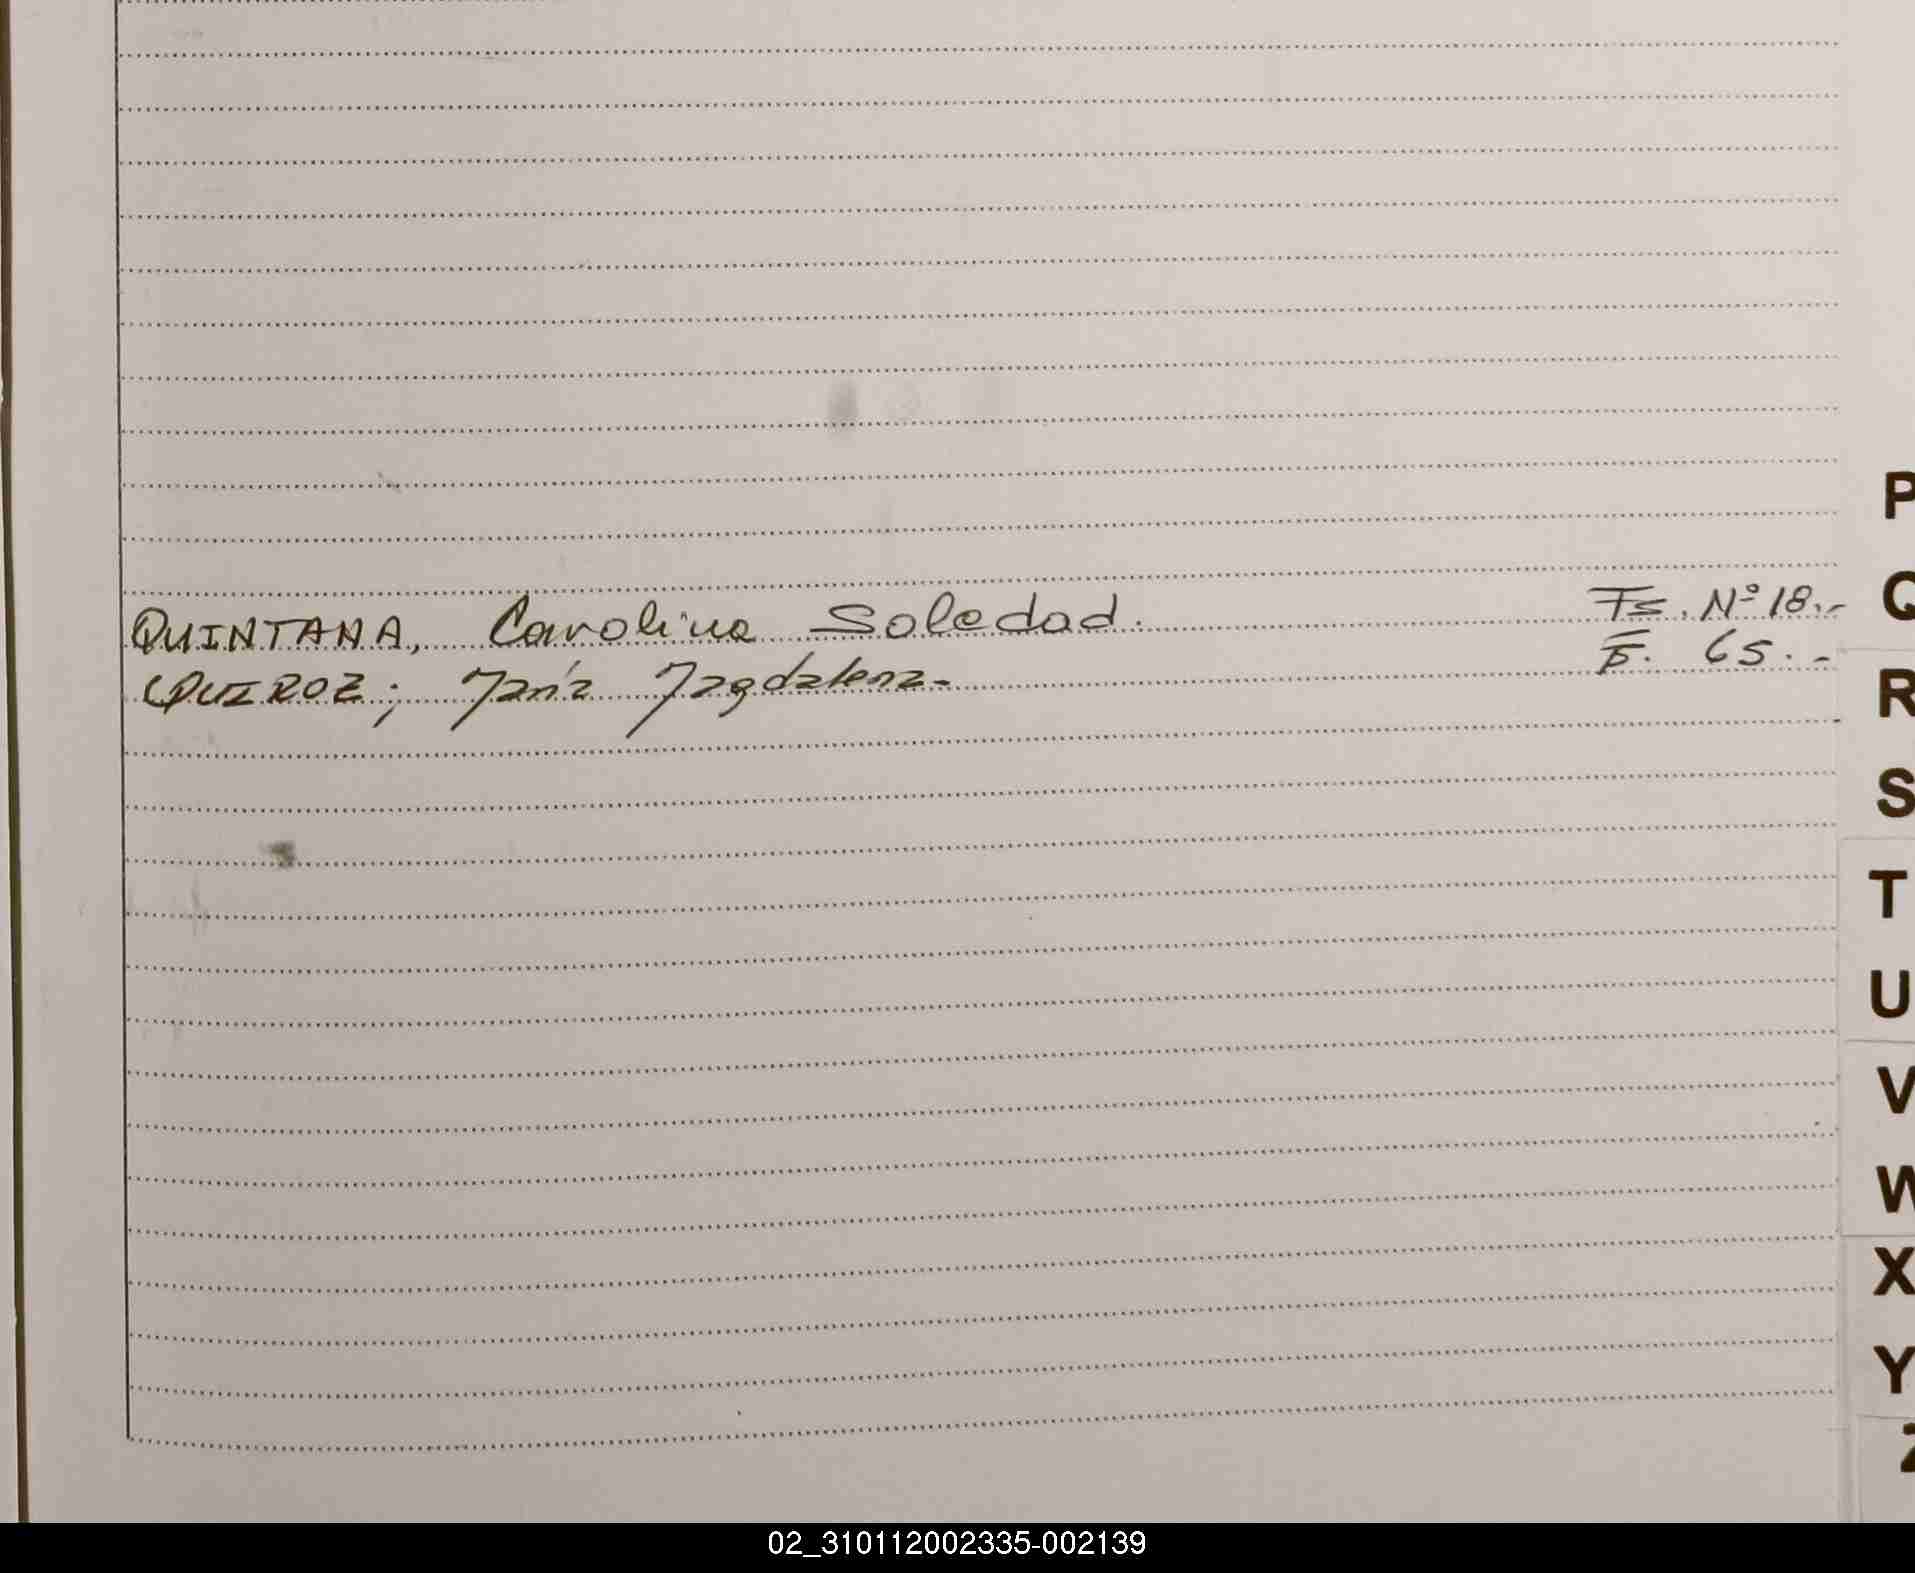 QUINTANA, Carolina Soledad. Fs. Nº 18.-
QUIROZ; María Magdalena.- Fs. 65.-
P
Q
R
S
T
U
V
W
X
Y
Z
02_310112002335-002139